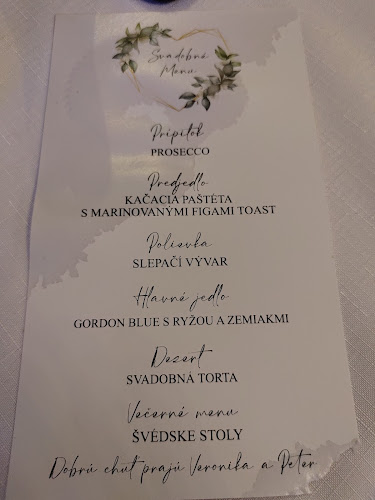 Svadobné
Menu
Prípitok
PROSECCO
Predjedlo
KAČACIA PAŠTÉTA
S MARINOVANÝMI FIGAMI TOAST
Polievka
SLEPAČÍ VÝVAR
Hlavné jedlo
GORDON BLUE S RYŽOU A ZEMIAKMI
Dezert
SVADOBNÁ TORTA
Večerné menu
ŠVÉDSKE STOLY
Dobrú chuť prajú Veronika a Peter